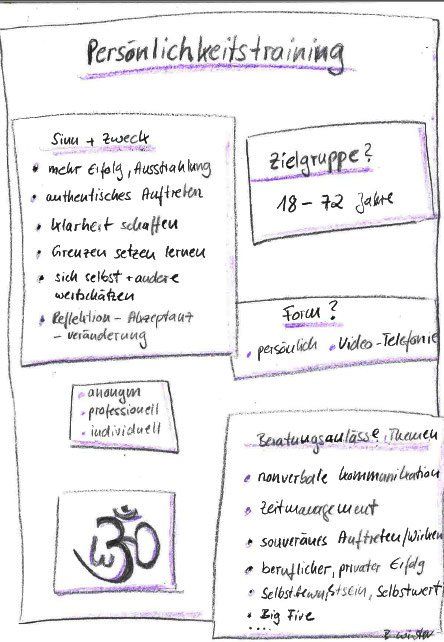 Persönlichkeitstraining
Sinn + Zweck
• mehr Erfolg, Ausstrahlung
• authentisches Auftreten
• Klarheit schaffen
• Grenzen setzen lernen
• sich selbst + andere
wertschätzen
• Reflektion - Akzeptanz
- Veränderung
Zielgruppe?
18 - 72 Jahre
Form?
• persönlich • Video-Telefonie
• anonym
• professionell
• individuell
Beratungsanlässe, Themen
• nonverbale Kommunikation
• Zeitmanagement
• souveränes Auftreten/Wirken
• beruflicher, privater Erfolg
• Selbstbewußtsein, Selbstwert
• Big Five
....
ॐ